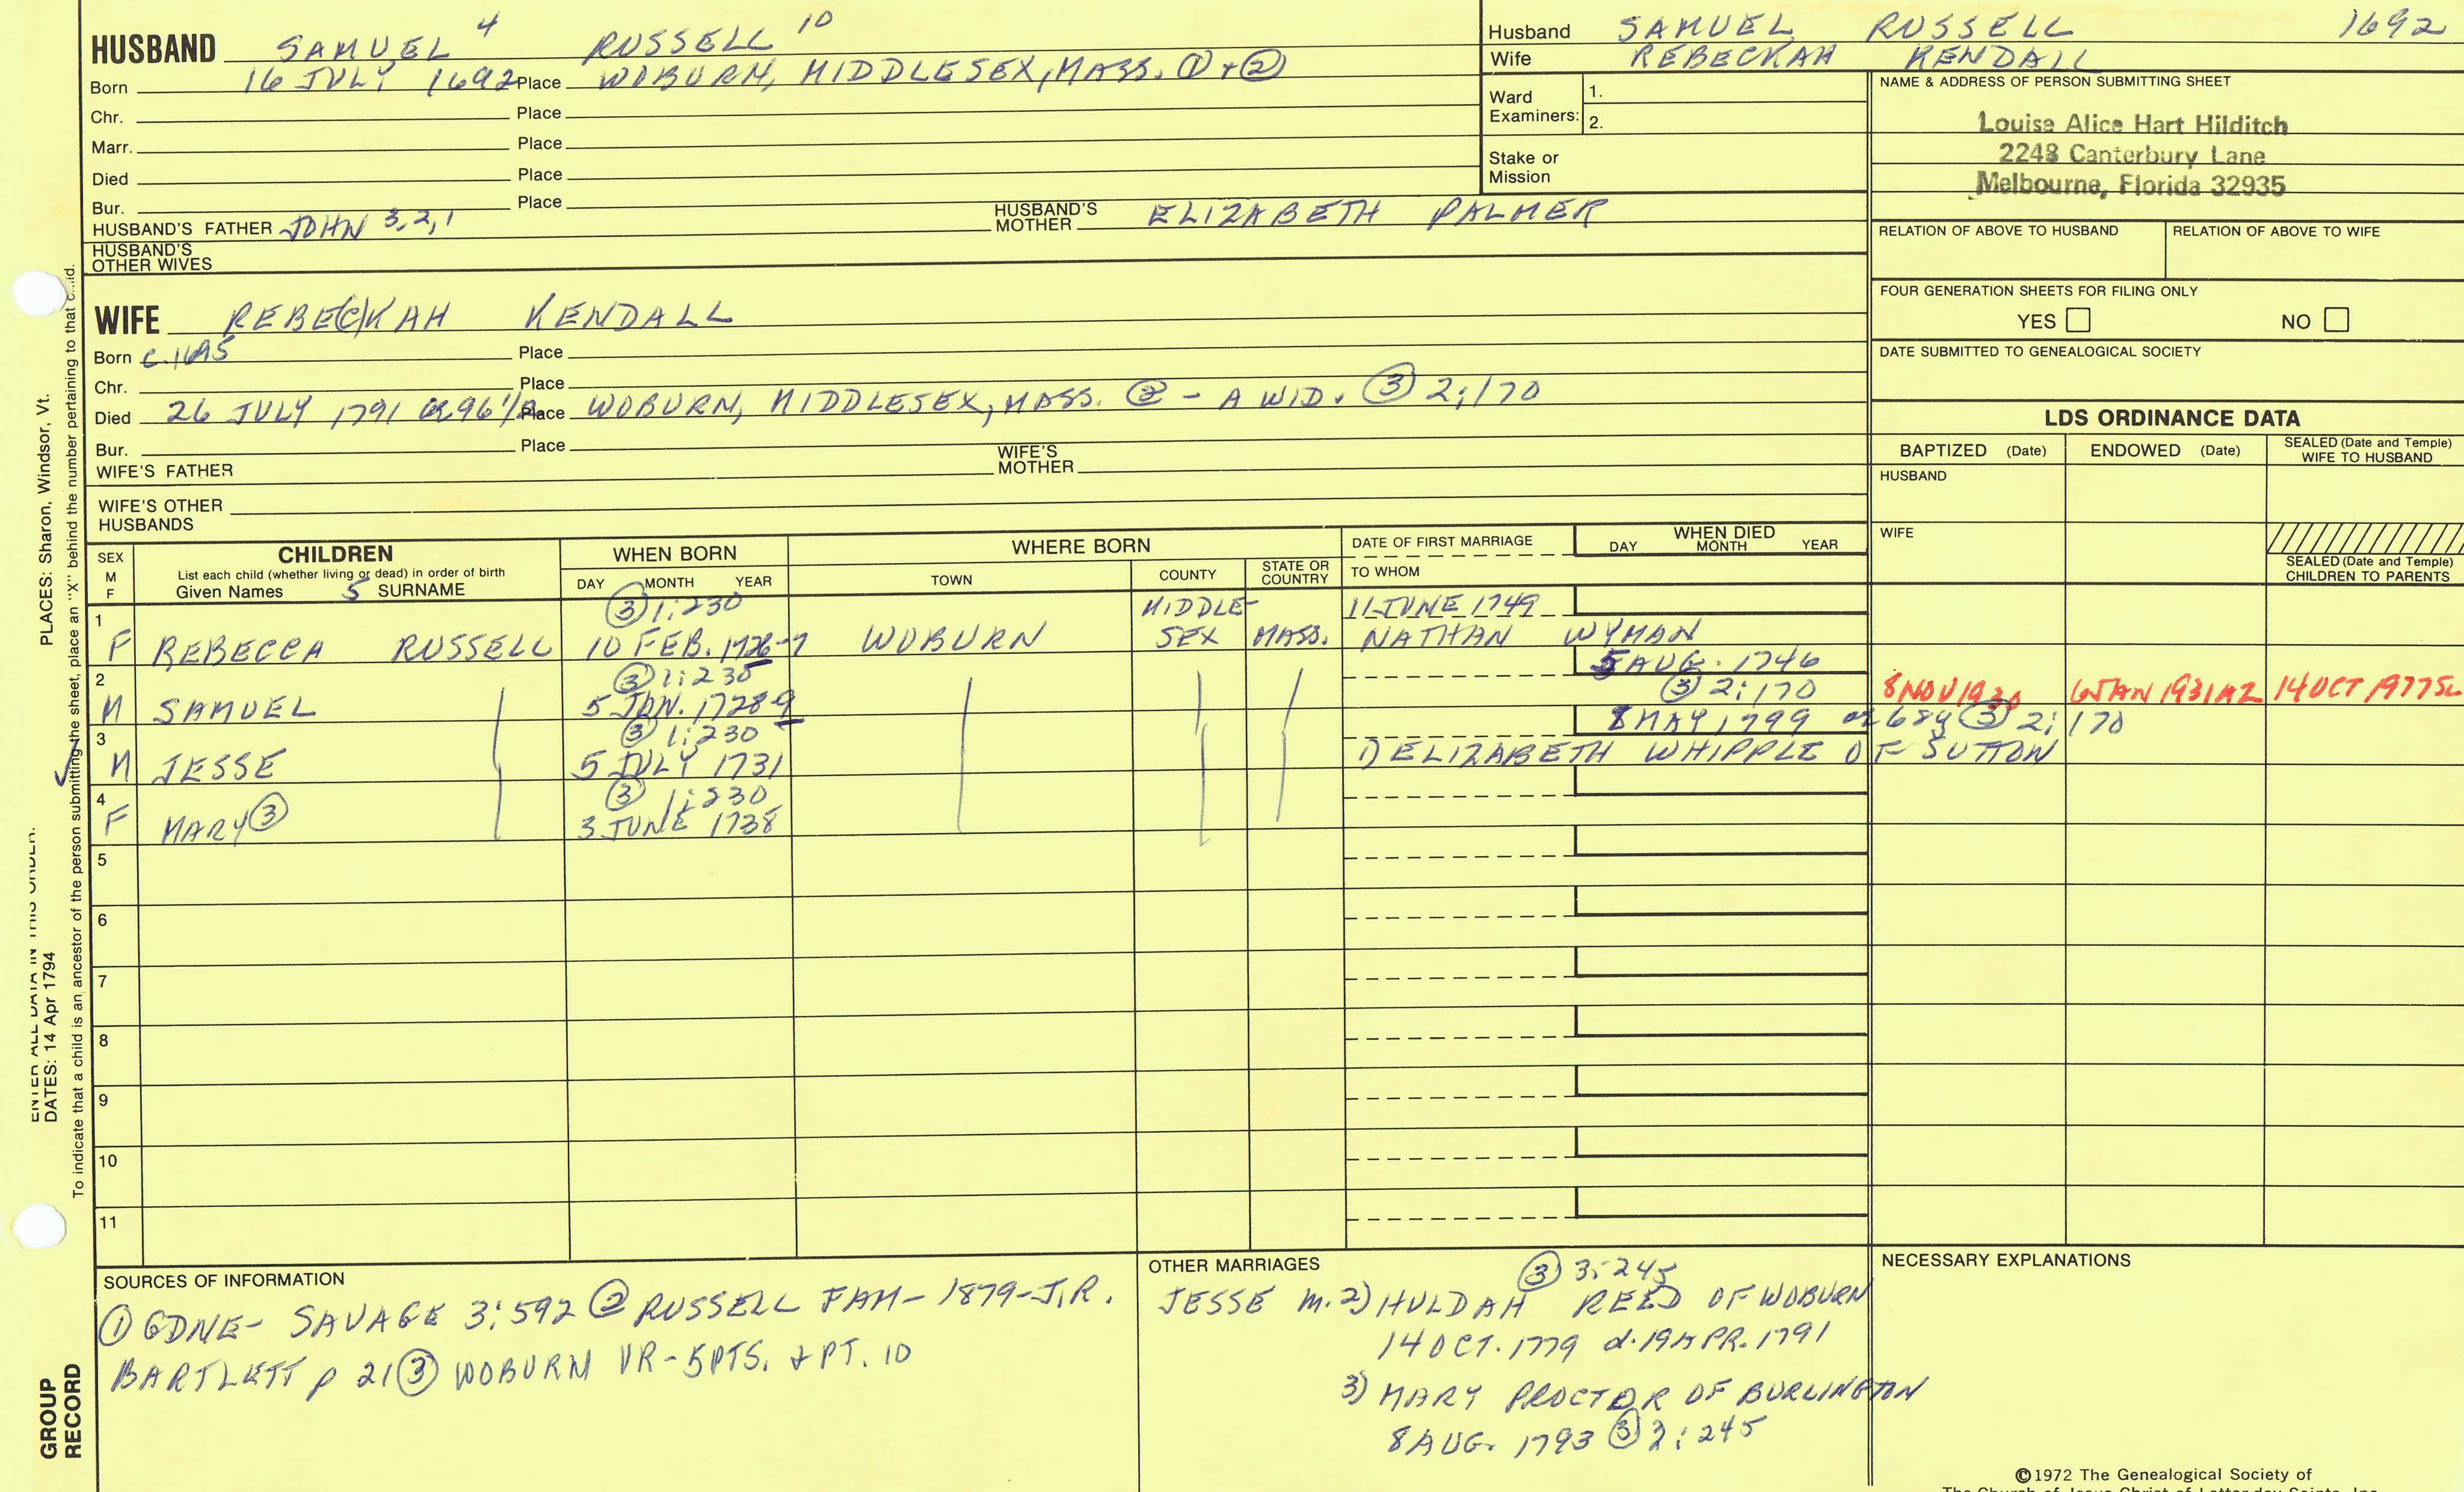 HUSBAND SAMUEL 4 RUSSELL 10
Born 16 JULY 1692 Place WOBURN, MIDDLESEX, MASS. ① + ②
Chr. Place
Marr. Place
Died Place
Bur. Place
HUSBAND'S FATHER JOHN 3,2,1 HUSBAND'S MOTHER ELIZABETH PALMER
HUSBAND'S OTHER WIVES
Husband SAMUEL RUSSELL 1692
Wife REBECKAH KENDALL
Ward Examiners: 1.
2.
Stake or Mission
NAME & ADDRESS OF PERSON SUBMITTING SHEET
Louise Alice Hart Hilditch
2248 Canterbury Lane
Melbourne, Florida 32935
RELATION OF ABOVE TO HUSBAND RELATION OF ABOVE TO WIFE
FOUR GENERATION SHEETS FOR FILING ONLY
YES NO
DATE SUBMITTED TO GENEALOGICAL SOCIETY
WIFE REBE(C)KAH KENDALL
Born c.1695 Place
Chr. Place
Died 26 JULY 1791 Place WOBURN, MIDDLESEX, MASS. ② - A WID. ③ 2:170
Bur. Place
WIFE'S FATHER WIFE'S MOTHER
WIFE'S OTHER HUSBANDS
LDS ORDINANCE DATA
BAPTIZED (Date) ENDOWED (Date) SEALED (Date and Temple) WIFE TO HUSBAND
HUSBAND
WIFE
SEALED (Date and Temple) CHILDREN TO PARENTS
SEX M F
CHILDREN
List each child (whether living or dead) in order of birth
Given Names 5 SURNAME
WHEN BORN
DAY MONTH YEAR
WHERE BORN
TOWN COUNTY STATE OR COUNTRY
DATE OF FIRST MARRIAGE
TO WHOM
WHEN DIED
DAY MONTH YEAR
③ 1:230 MIDDLE- 11 JUNE 1749
1 F REBECCA RUSSELL 10 FEB. 1726-7 WOBURN SEX MASS. NATHAN WYMAN
③ 1:230 5 AUG. 1746
2 M SAMUEL 5 JAN. 1728-9 ③ 2:170 8 NOV 1930 6 JAN 1931 AZ 14 OCT 1977 SL
③ 1:230 8 MAY 1799 68y ③ 2:170
3 M JESSE 5 JULY 1731 1) ELIZABETH WHIPPLE OF SUTTON
③ 1:230
4 F MARY ③ 3 JUNE 1738
5
6
7
8
9
10
11
SOURCES OF INFORMATION
① GDNE- SAVAGE 3:592 ② RUSSELL FAM- 1879-J.R.
BARTLETT p 21 ③ WOBURN VR-5PTS. + PT. 10
OTHER MARRIAGES ③ 3:245
JESSE M. 2) HULDAH REED OF WOBURN
14 OCT. 1779 d. 19 APR. 1791
3) MARY PROCTOR OF BURLINGTON
8 AUG. 1793 ③ 3:245
NECESSARY EXPLANATIONS
©1972 The Genealogical Society of
The Church of Jesus Christ of Latter-day Saints, Inc.
PLACES: Sharon, Windsor, Vt.
To indicate that a child is an ancestor of the person submitting the sheet, place an "X" behind the number pertaining to that child.
ENTER ALL DATA IN THIS ORDER:
DATES: 14 Apr 1794
GROUP
RECORD